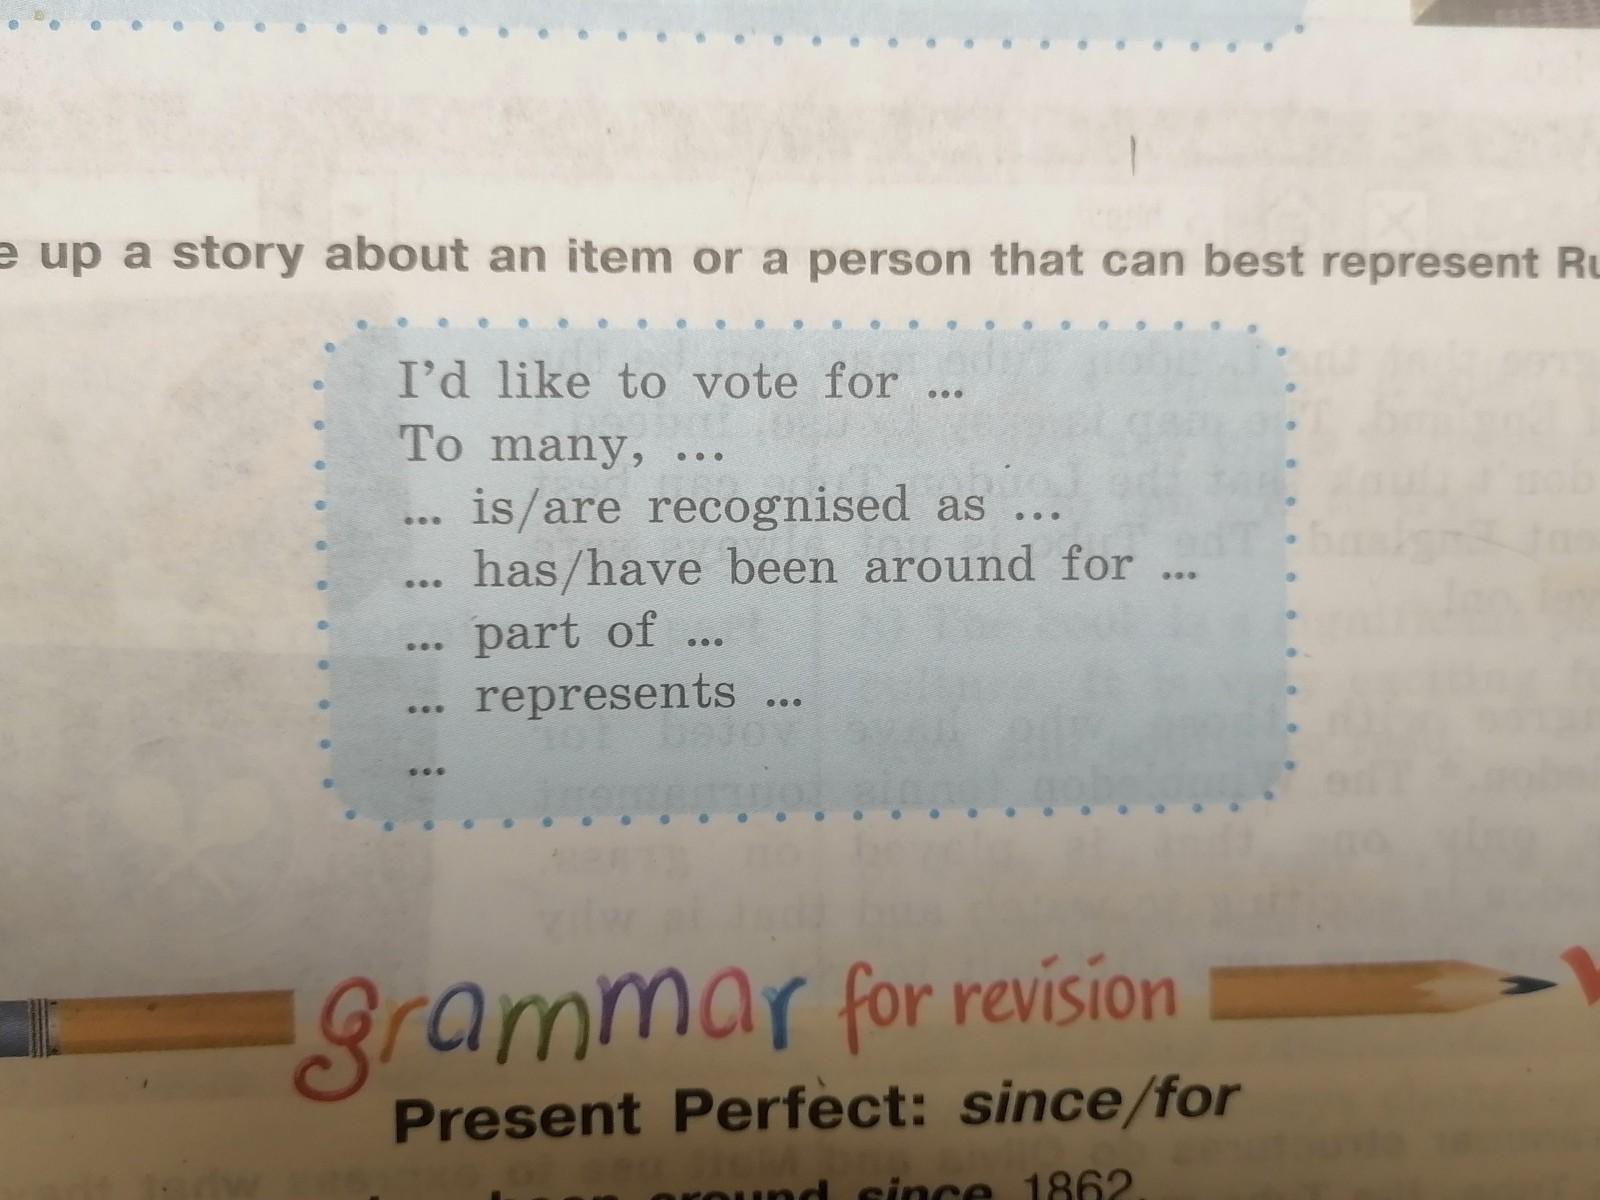 e up a story about an item or a person that can best represent Ru
I'd like to vote for ...
To many, ...
... is/are recognised as ...
... has/have been around for ...
... part of ...
... represents ...
...
grammar for revision
Present Perfect: since/for
been around since 1862.